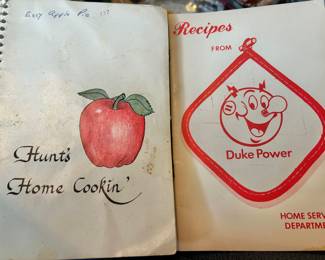 Easy Apple Pie 117
Hunt's
Home Cookin'
Recipes
FROM
Duke Power
HOME SERV
DEPARTME